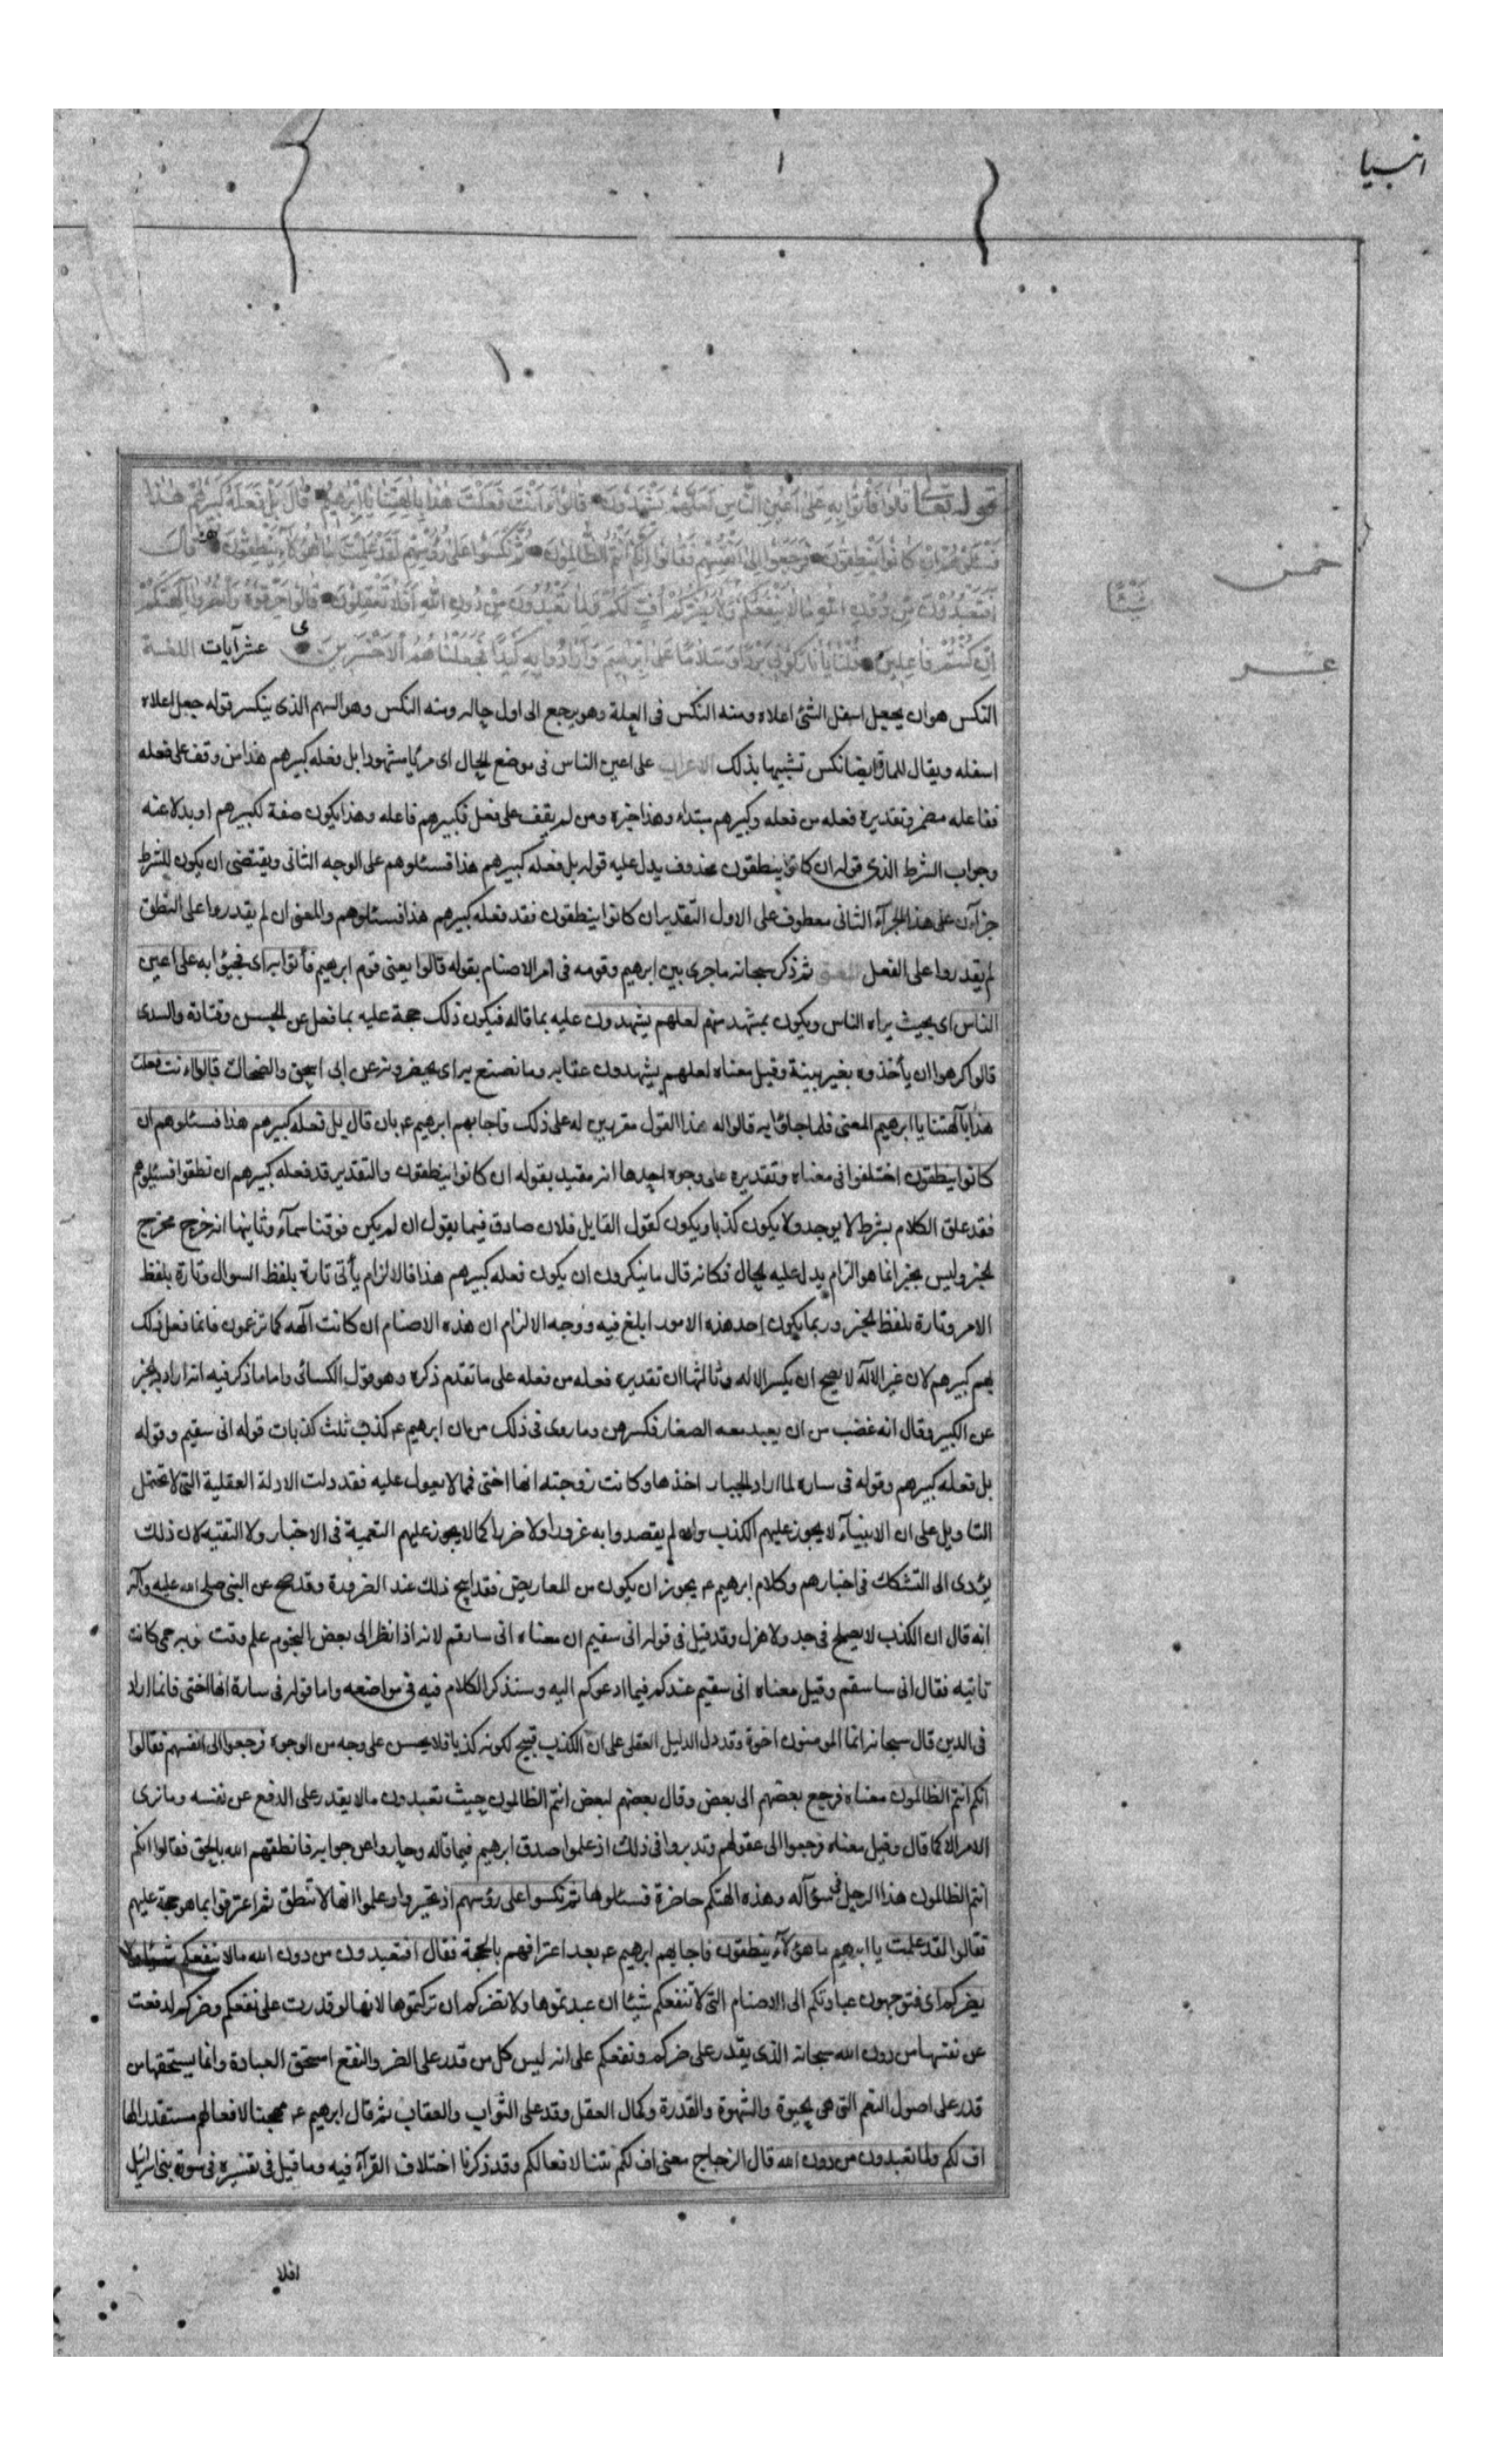 انبيا
قوله تعالى قالوا فأتوا به على اعين الناس لعلهم يشهدون قالوا ءانت فعلت هذا بالهتنا يا ابرهيم قال بل فعله كبيرهم هذا
فسئلوهم ان كانوا ينطقون فرجعوا الى انفسهم فقالوا انكم انتم الظالمون ثم نكسوا على رؤسهم لقد علمت ما هؤلاء ينطقون قال
خمس
افتعبدون من دون الله ما لا ينفعكم شيئا ولا يضركم اف لكم ولما تعبدون من دون الله افلا تعقلون قالوا حرقوه وانصروا الهتكم
شيئا
ان كنتم فاعلين قلنا يا نار كوني بردا وسلاما على ابرهيم وارادوا به كيدا فجعلناهم الاخسرين ى عشر آيات اللغة
عشر
النكس هو ان يجعل اسفل الشئ اعلاه ومنه النكس فى العلة وهو يرجع الى اول حاله ومنه النكس وهو السهم الذى ينكسر فوقه جعل اعلاه
اسفله ويقال للمائق ايضا نكس تشبيها بذلك الاعراب على اعين الناس فى موضع الحال اى مرئيا مشهودا بل فعله كبيرهم هذا من وقف على فعله
ففاعله مضمر وتقديره فعله من فعله وكبيرهم مبتداء وهذا خبره ومن لم يقف على فعل فكبيرهم فاعله وهذا يكون صفة لكبيرهم او بدلا عنه
وجواب الشرط الذى قوله ان كانوا ينطقون محذوف يدل عليه قوله بل فعله كبيرهم هذا فسئلوهم على الوجه الثانى ويقتضى ان يكون للشرط
جزآءن على هذا الجزآء الثانى معطوف على الاول التقدير ان كانوا ينطقون فقد فعله كبيرهم هذا فسئلوهم والمعنى ان لم يقدروا على النطق
لم يقدروا على الفعل المعنى ثم ذكر سبحانه ما جرى بين ابرهيم وقومه فى امر الاصنام بقوله قالوا يعنى قوم ابرهيم فأتوا به اى فجيؤا به على اعين
الناس اى بحيث يراه الناس ويكون بمشهد منهم لعلهم يشهدون عليه بما قاله فيكون ذلك حجة عليه بما فعل عن الحسن وقتادة والسدى
قالوا كرهوا ان يأخذوه بغير بينة وقيل معناه لعلهم يشهدون عقابه وما نصنع به اى يحضرونه عن ابى اسحق والضحاك قالوا ءانت فعلت
هذا بآلهتنا يا ابرهيم المعنى فلما جاؤا به قالوا له هذا القول مقررين له على ذلك فاجابهم ابرهيم عم بان قال بل فعله كبيرهم هذا فسئلوهم ان
كانوا ينطقون اختلفوا فى معناه وتقديره على وجوه احدها انه مقيد بقوله ان كانوا ينطقون والتقدير قد فعله كبيرهم ان نطقوا فسئلوهم
فقد علق الكلام بشرط لا يوجد ولا يكون كذبا ويكون كقول القايل فلان صادق فيما يقول ان لم يكن فوقنا سمآء وثانيها انه خرج مخرج
الخبر وليس بخبر انما هو الزام يدل عليه الحال فكانه قال ما ينكرون ان يكون فعله كبيرهم هذا فالالزام يأتى تارة بلفظ السوال وتارة بلفظ
الامر وتارة بلفظ الخبر وربما يكون احد هذه الامور ابلغ فيه ووجه الالزام ان هذه الاصنام ان كانت آلهه كما تزعمون فانما فعل ذلك
بهم كبيرهم لان غير الاله لا يصح ان يكسر الاله وثالثها ان تقديره فعله من فعله على ما تقدم ذكره وهو قول الكسائى واما ما ذكر فيه انه اراد الخبر
عن الكبير وقال انه غضب من ان يعبد معه الصغار فكسرهن وما روى فى ذلك من ان ابرهيم عم كذب ثلث كذبات قوله انى سقيم وقوله
بل فعله كبيرهم وقوله فى ساره لما اراد الجبار اخذها وكانت زوجته انها اختى فمما لا يعول عليه فقد دلت الادلة العقلية التى لا تحتمل
التاويل على ان الانبيآء لا يجوز عليهم الكذب وان لم يقصدوا به غرورا ولا ضررا كما لا يجوز عليهم التعمية فى الاخبار ولا التقيه لان ذلك
يؤدى الى التشكك فى اخبارهم وكلام ابرهيم عم يجوز ان يكون من المعاريض فقد ابيح ذلك عند الضرورة وقد صح عن النبى صلى الله عليه وآله
انه قال ان الكذب لا يصلح فى جد ولا هزل وقد قيل فى قوله انى سقيم ان معناه انى ساسقم لانه اذا نظر الى بعض النجوم علم وقت نوبه حمى كانت
تاتيه فقال انى ساسقم وقيل معناه انى سقيم عندكم فيما ادعوكم اليه وسنذكر الكلام فيه فى مواضعه واما قوله فى سارة انها اختى فانما اراد
فى الدين قال سبحانه انما المومنون اخوة وقد دل الدليل العقلى على ان الكذب قبيح لكونه كذبا فلا يحسن على وجه من الوجوه فرجعوا الى انفسهم فقالوا
انكم انتم الظالمون معناه فرجع بعضهم الى بعض وقال بعضهم لبعض انتم الظالمون حيث تعبدون ما لا يقدر على الدفع عن نفسه وما نرى
الامر الا كما قال وقيل معناه فرجعوا الى عقولهم وتدبروا فى ذلك اذ علموا صدق ابرهيم فيما قاله وحاروا عن جوابه فانطقهم الله بالحق فقالوا انكم
انتم الظالمون هذا الرجل فى سؤآله وهذه الهتكم حاضرة فسئلوها ثم نكسوا على رؤسهم اذ تحيروا وعلموا انها لا تنطق ثم اعترفوا بما هو حجة عليهم
فقالوا لقد علمت يا ابرهيم ما هؤلآء ينطقون فاجابهم ابرهيم عم بعد اعترافهم بالحجة فقال افتعبدون من دون الله ما لا ينفعكم شيئا ولا
يضركم اى فتوجهون عبادتكم الى الاصنام التى لا تنفعكم شيئا ان عبدتموها ولا تضركم ان تركتموها لانها لو قدرت على نفعكم وضركم لدفعت
عن نفسها من دون الله سبحانه الذى يقدر على ضركم ونفعكم على انه ليس كل من قدر على الضر والنفع استحق العبادة وانما يستحقها من
قدر على اصول النعم التى هى الحيوة والشهوة والقدرة وكمال العقل وقد على الثواب والعقاب ثم قال ابرهيم عم مهجنا لافعالهم مستقذرا لها
اف لكم ولما تعبدون من دون الله قال الزجاج معنى اف لكم نتنا لافعالكم وقد ذكرنا اختلاف القرآء فيه وما قيل فى تفسيره فى سورة بنى اسرائيل
افلا